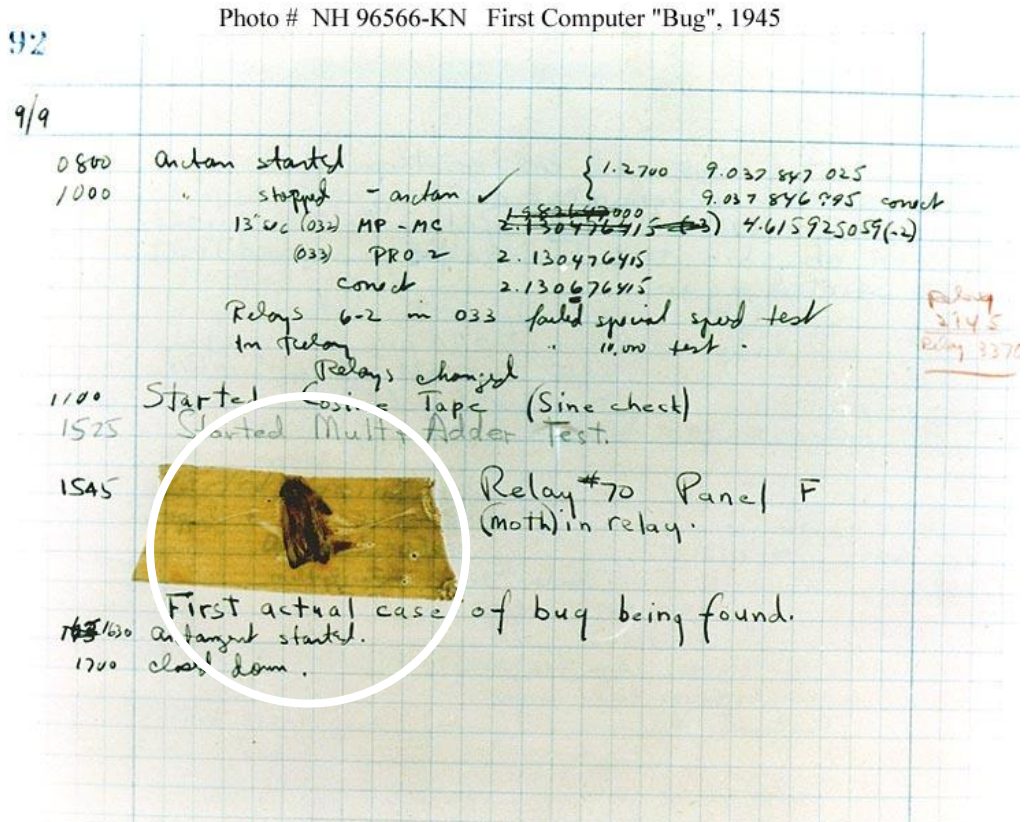 Photo # NH 96566-KN First Computer "Bug", 1945
92
9/9
0800 arctan started { 1.2700 9.037 847 025
1000 " stopped - arctan ✓ 9.037 846 995 correct
13" uc (032) MP - MC 2.130476415 (-3) 4.615925059(-2)
(033) PRO 2 2.130476415
correct 2.130676415
Relays 6-2 in 033 failed special speed test
In Relay " 10.000 test .
Relays changed
Relay
2145
Relay 3370
1100 Started Cosine Tape (Sine check)
1525 Started Mult + Adder Test.
1545 Relay #70 Panel F
(moth) in relay.
First actual case of bug being found.
1630 arctangent started.
1700 closed down.